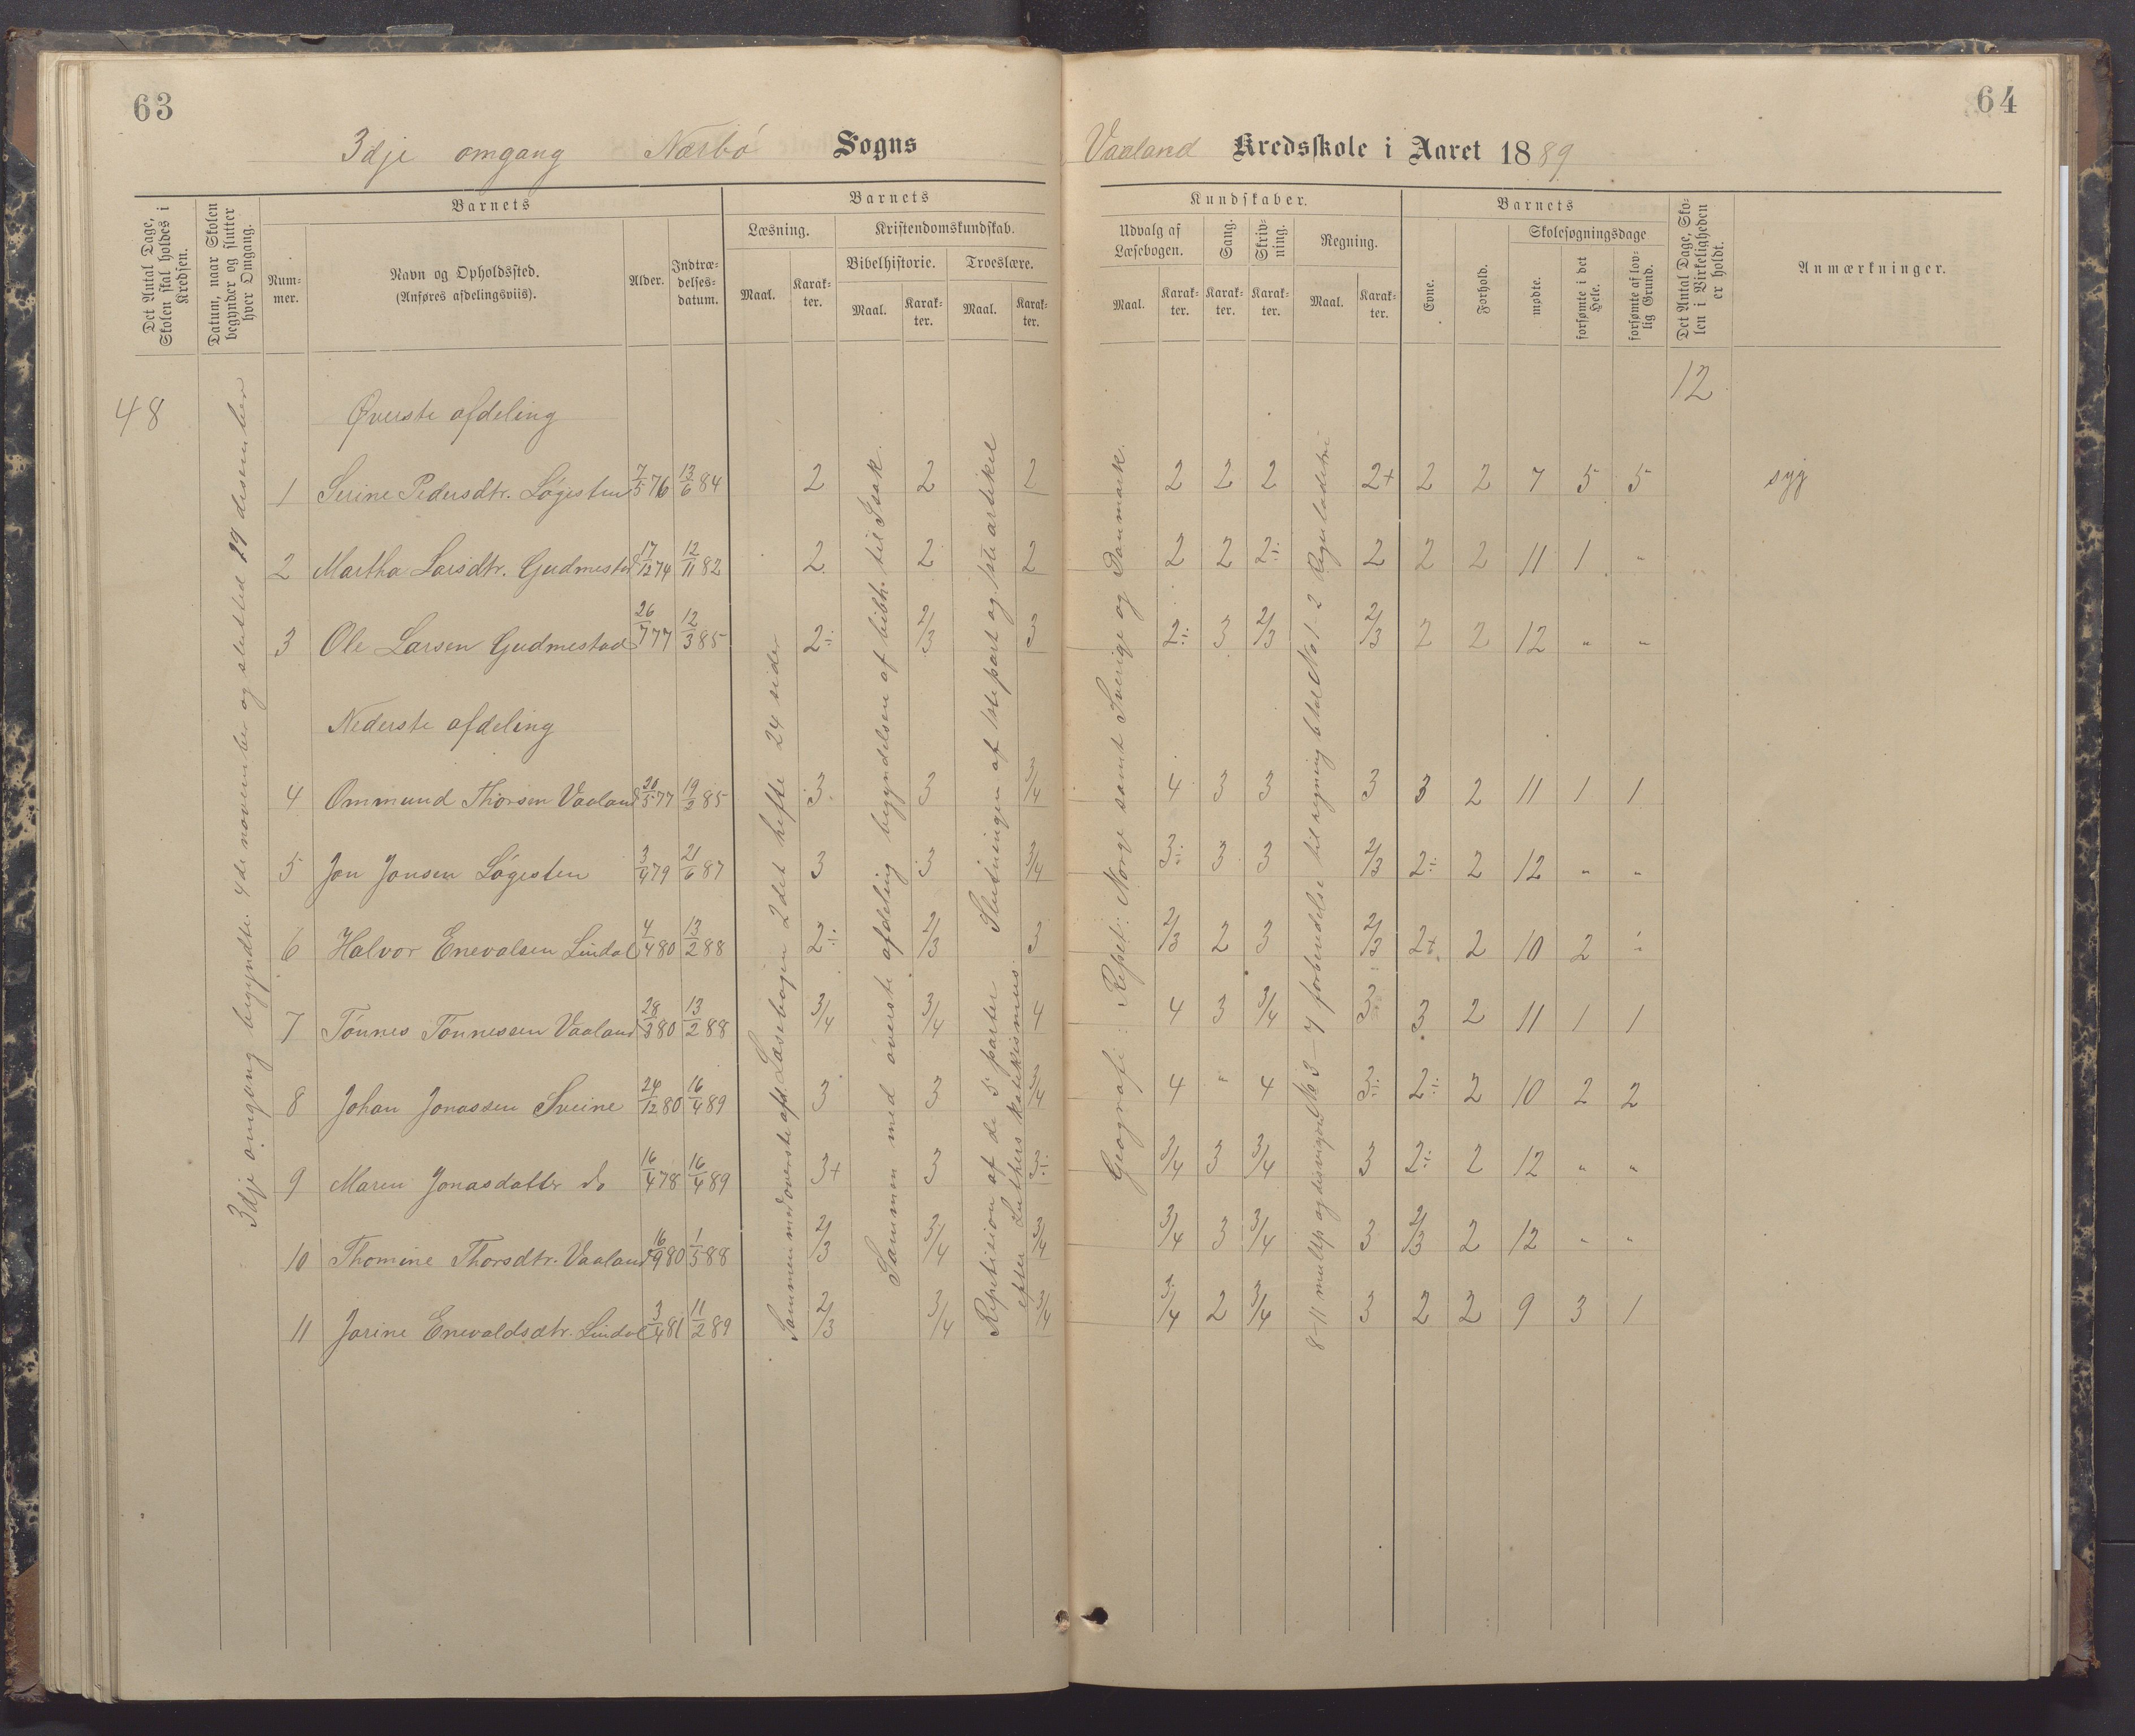 63
3dje omgang Nærbø Sogns
Det Antal Dage, Skolen skal holdes i Kredsen.
Datum, naar Skolen begynder og slutter hver Omgang.
Barnets
Num-
mer.
Navn og Opholdssted.
(Anføres afdelingsviis).
Alder.
Indtræ-
delses-
datum.
Barnets
Læsning.
Kristendomskundskab.
Bibelhistorie.
Troeslære.
Maal.
Karak-
ter.
Maal.
Karak-
ter.
Maal.
Karak-
ter.
48
3dje omgang begyndte 4de november og slutted 17 desember
Øverste afdeling
1 Serine Pedersdtr. Løgesten 7/5 76 13/6 84 2 2 2
2 Martha Larsdtr. Gudmestad 17/12 74 12/11 82 2 2 2
3 Ole Larsen Gudmestad 26/7 77 12/3 85 2÷ 2/3 3
Nederste afdeling
4 Ommund Thorsen Vaaland 20/5 77 19/2 85 3 3 3/4
5 Jon Jonsen Løgesten 3/4 79 21/6 87 3 3 3/4
6 Halvor Enevalsen Lindal 4/4 80 13/2 88 2÷ 2/3 3
7 Tønnes Tønnessen Vaaland 28/3 80 13/2 88 3/4 3/4 4
8 Johan Jonassen Sveine 24/12 80 16/4 89 3 3 3/4
9 Maren Jonasdatter do 16/4 78 16/4 89 3+ 3 3÷
10 Thomine Thorsdtr. Vaaland 16/9 80 1/5 88 2/3 3/4 3/4
11 Jorine Enevaldsdtr. Lindal 3/4 81 11/2 89 2/3 3/4 3/4
Sammen med øverste afd. Læsebogen 2det hefte 24 sider
Sammen med øverste afdeling begyndelsen af bibh. til Isak.
Repetision af de 5 parter efter Luthers katekismus.
Slutningen af 1ste part og 1ste artikel
64
Vaaland Kredsskole i Aaret 1889
Kundskaber.
Udvalg af
Læsebogen.
Sang.
Skriv-
ning.
Regning.
Maal.
Karak-
ter.
Karak-
ter.
Karak-
ter.
Maal.
Karak-
ter.
Barnets
Evne.
Forhold.
Skolesøgningsdage
mødte.
forsømte i det Hele.
forsømte af lov-
lig Grund.
Det Antal Dage, Sko-
len i Virkeligheden
er holdt.
Anmærkninger.
12
2 2 2 2+ 2 2 7 5 5 syg
2 2 2÷ 2 2 2 11 1 "
2÷ 3 2/3 2/3 2 2 12 " "
4 3 3 3 3 2 11 1 1
3÷ 3 3 2/3 2÷ 2 12 " "
2/3 2 3 2/3 2+ 2 10 2 "
4 3 3/4 3 3 2 11 1 1
4 " 4 3÷ 2÷ 2 10 2 2
3/4 3 3/4 3 2÷ 2 12 " "
3/4 3 3/4 3 2/3 2 12 " "
3/4 2 3/4 3 2 2 9 3 1
Geografi: Repet: Norge samt Sverige og Danmark.
8-11 multip og divisjon No 3-7 forberedelse til regning